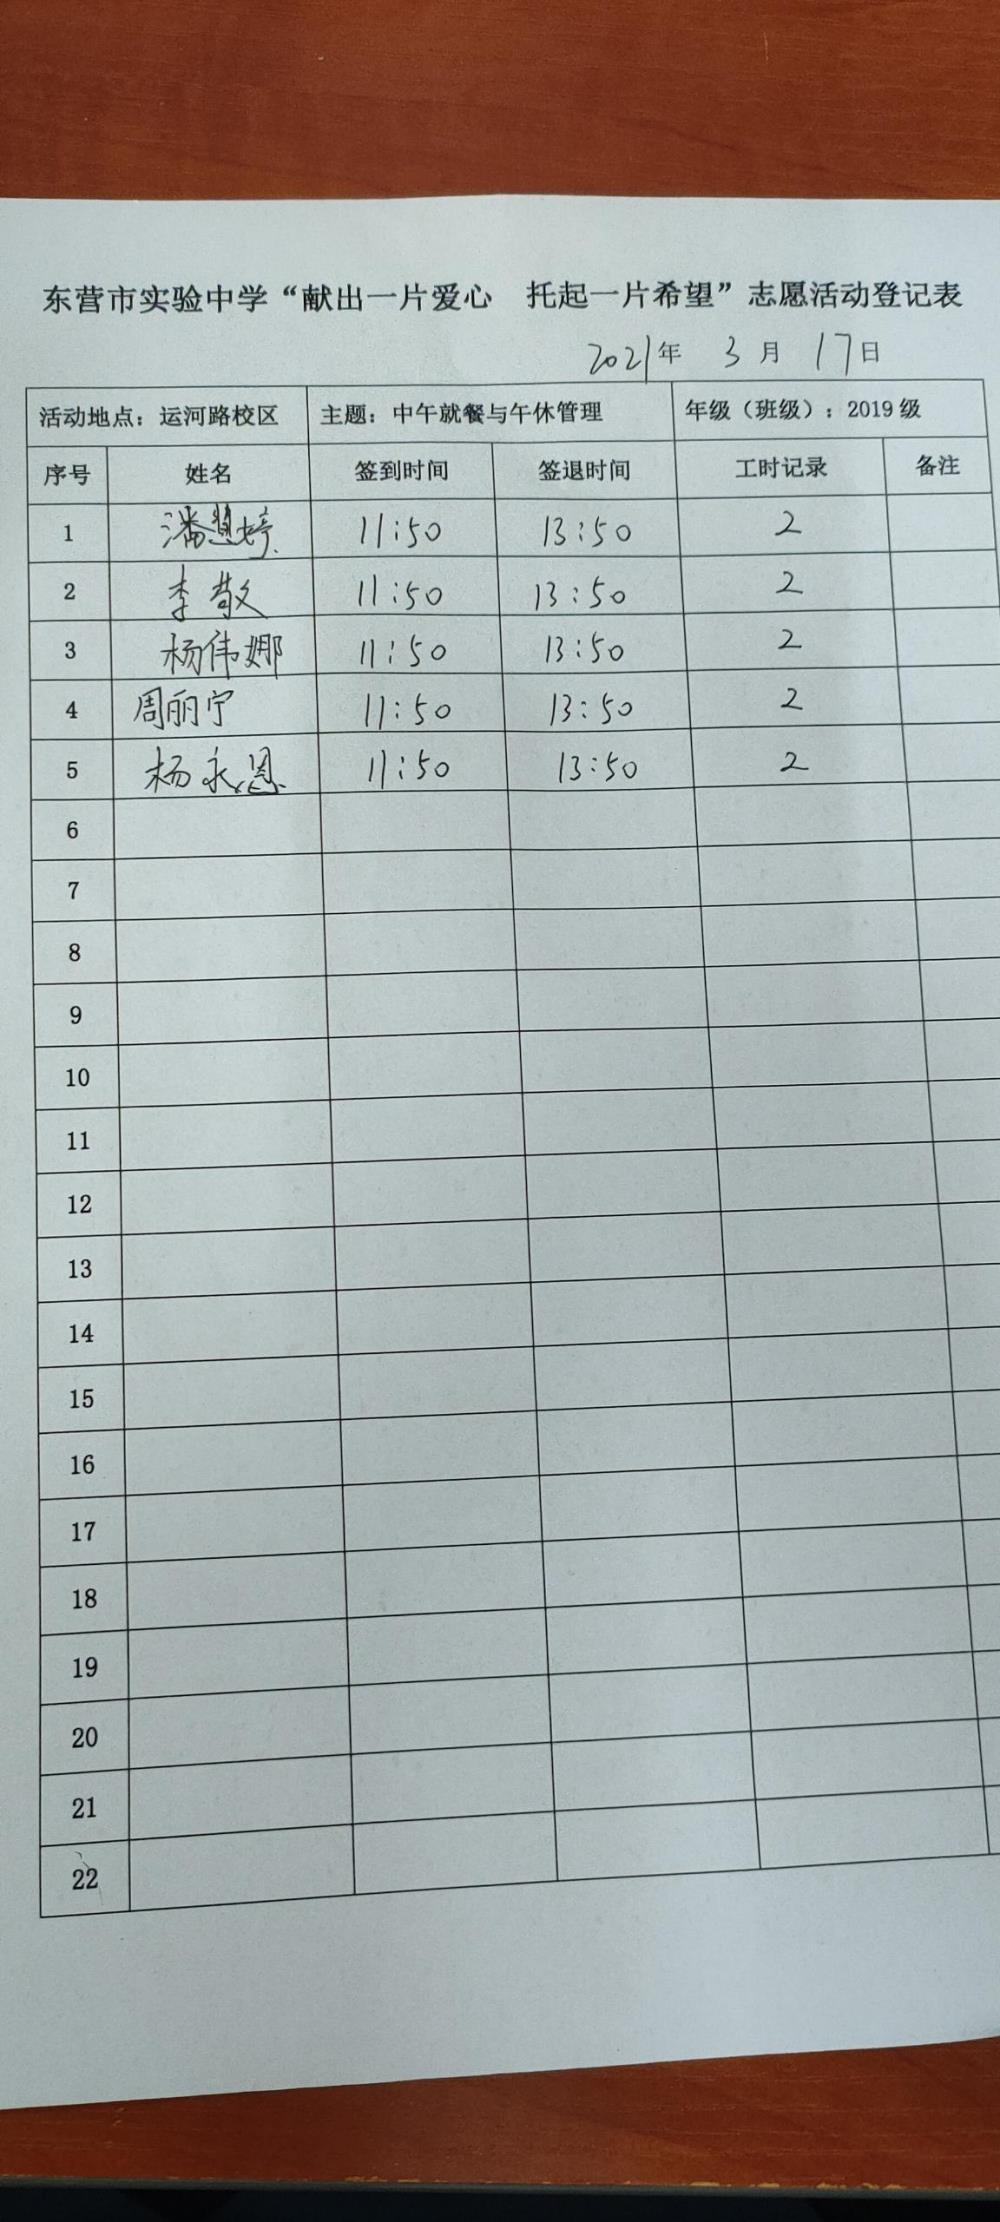 东营市实验中学“献出一片爱心 托起一片希望”志愿活动登记表
2021年 3月 17日
活动地点：运河路校区 主题：中午就餐与午休管理 年级（班级）：2019级
序号 姓名 签到时间 签退时间 工时记录 备注
1 潘慧婷 11:50 13:50 2
2 李敬 11:50 13:50 2
3 杨伟娜 11:50 13:50 2
4 周丽宁 11:50 13:50 2
5 杨永恩 11:50 13:50 2
6
7
8
9
10
11
12
13
14
15
16
17
18
19
20
21
22